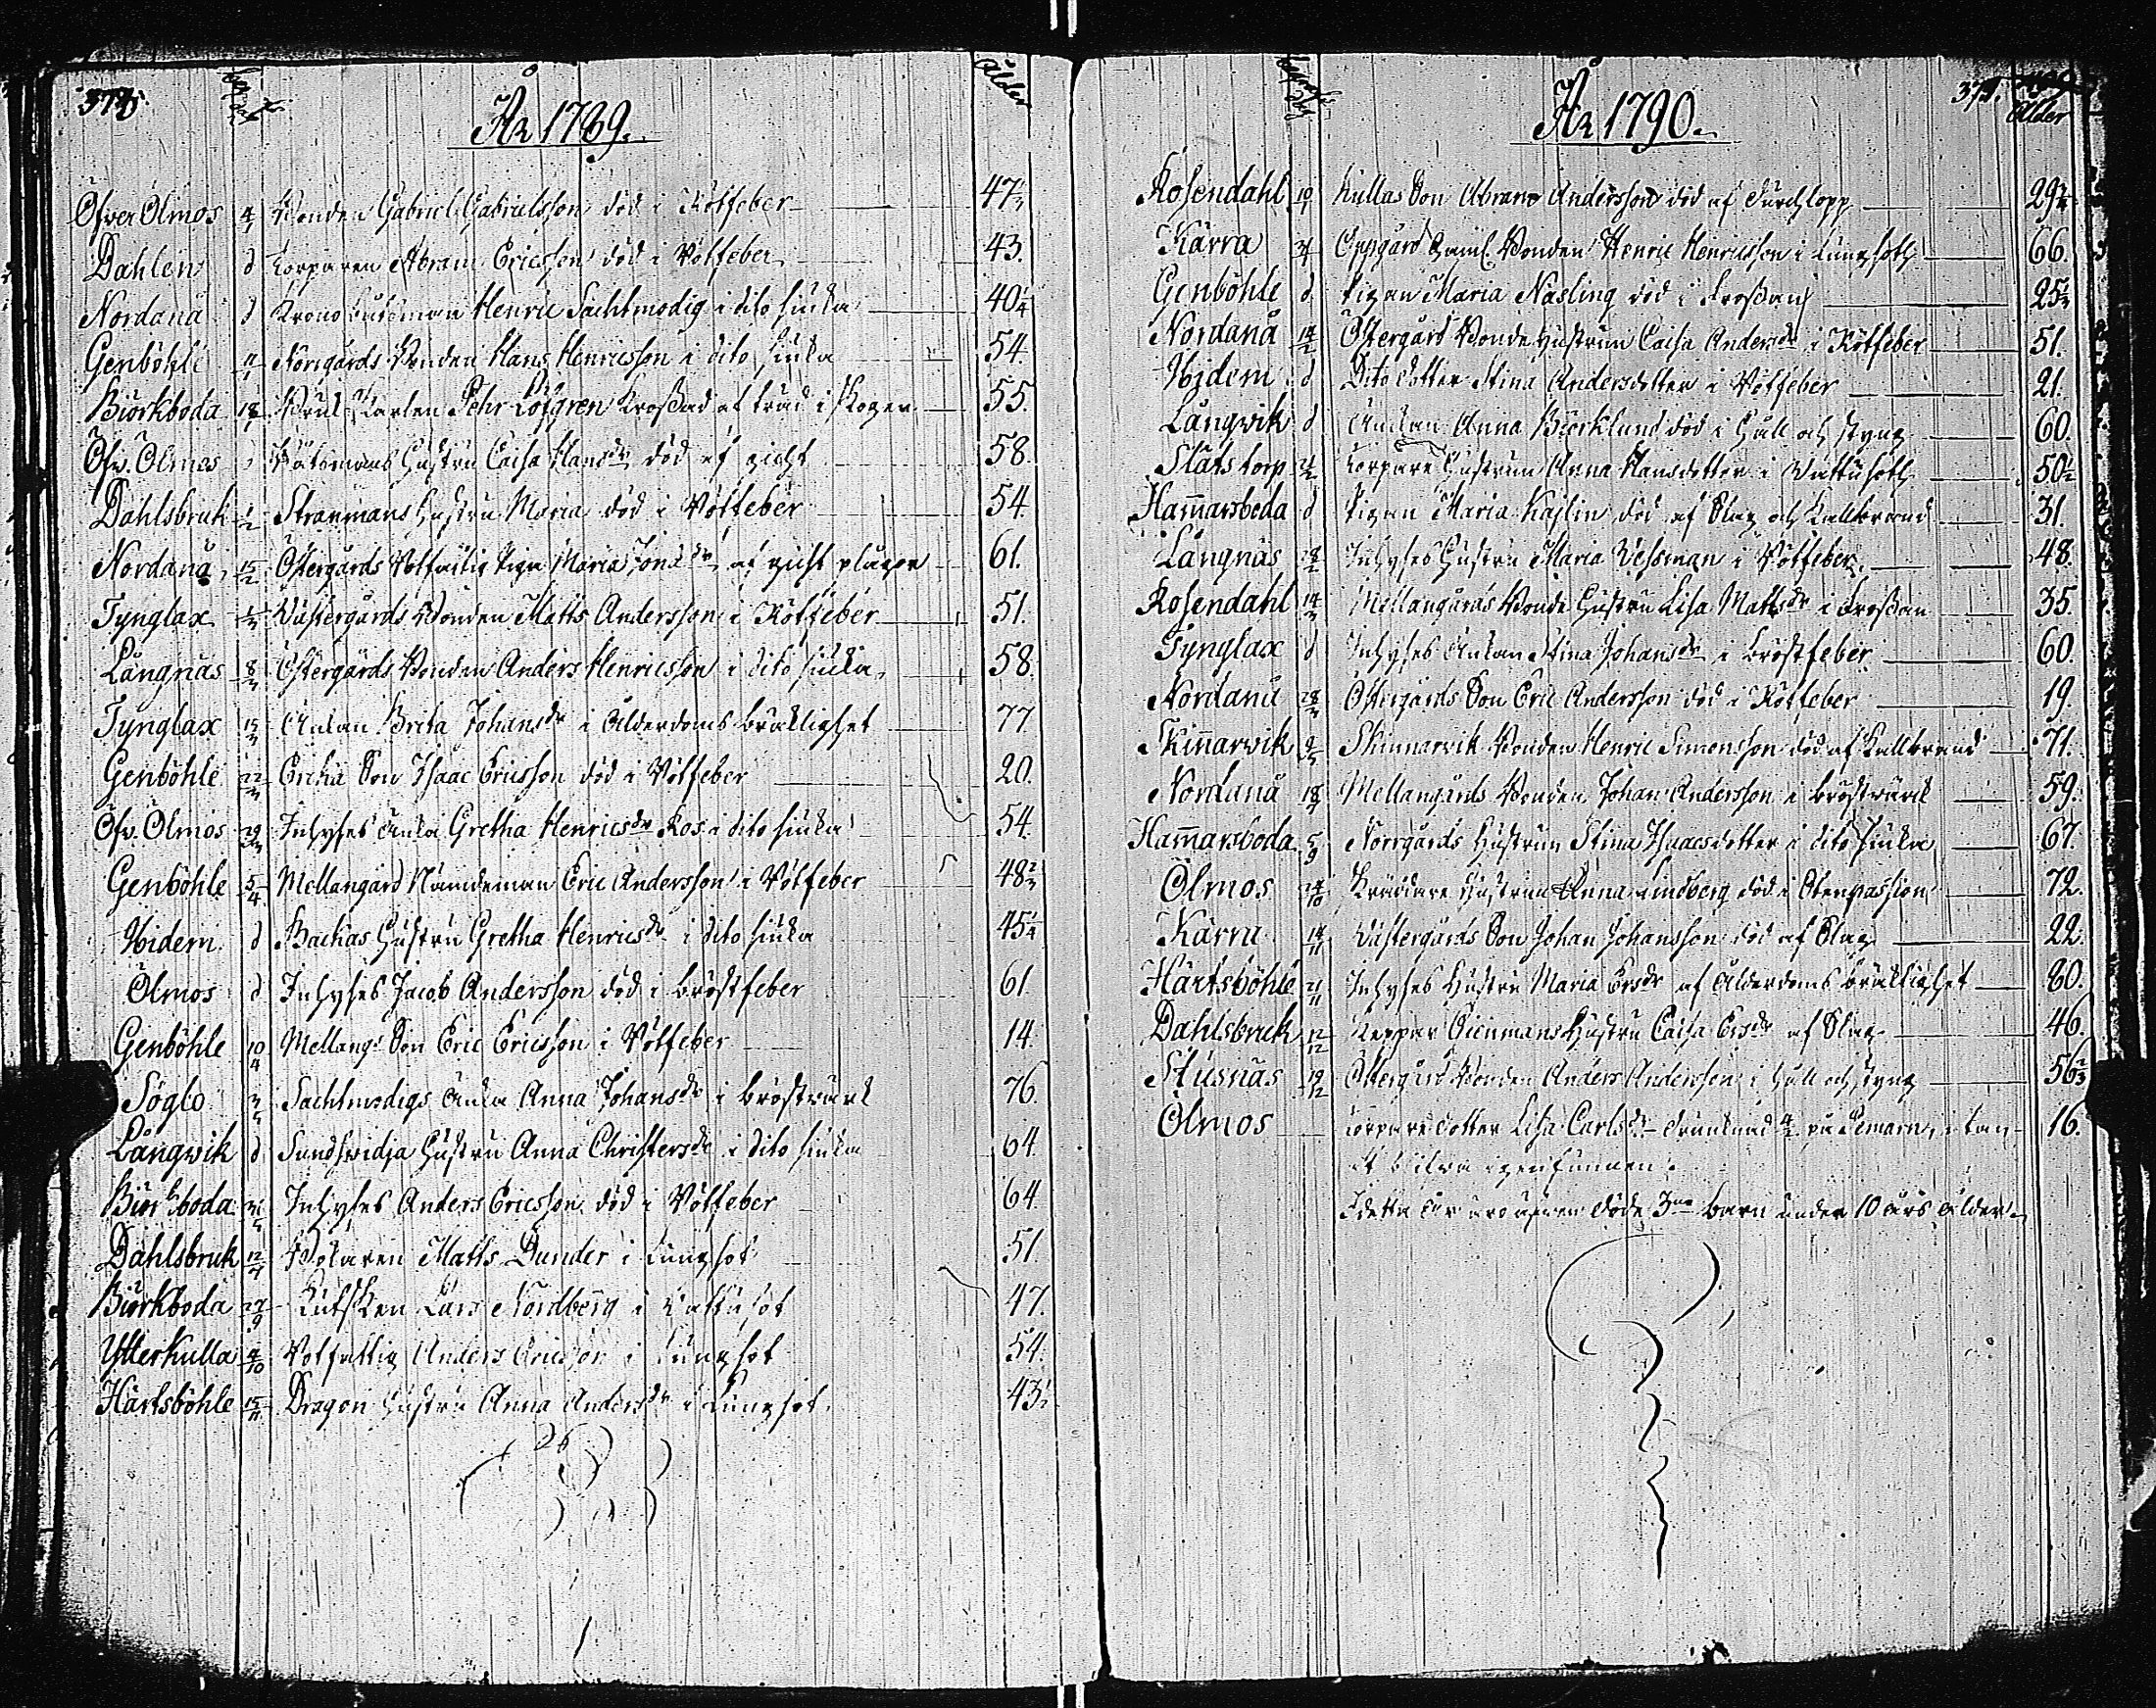 374.
Ålder
År 1789.
Öfver Ölmos 4/1 Bonden Gabriel Gabrielsson död i Rötfeber 47 1/2
Dahlen d Torparen Abram Ericsson död i Rötfeber 43.
Nordanå d Krono Båtsman Henric Sachtmodig i dito siuka 40 1/4
Genböhle 11/1 Norrgårds Bonden Hans Henricsson i dito siuka 54.
Biörkboda 18/1 Bruks Karlen Pehr Löfgren Krossad af träd i skogen 55.
Öfv. Ölmos d Båtsmans Hustru Caisa Hansdr död af gicht 58.
Dahlsbruk 1/2 Stranmans Hustru Maria död i Rötfeber 54.
Nordanå 15/2 Östergårds Rotfattig Piga Maria Jonsdr af gicht plågor 61.
Tynglax Västergårds Bonden Matts Andersson i Rötfeber 51.
Långnäs 8/3 Östergårds Bonden Anders Henricsson i dito siuka 58.
Tynglax 15/3 Änkan Brita Johansdr i Ålderdoms bräcklighet 77.
Genböhle 22/3 Son Isaac Ericsson död i Rötfeber 20.
Öfv. Ölmos 29/3 Inhyses Änka Gretha Henricsdr Ros i dito siuka 54.
Genböhle 5/4 Mellangård Nämdeman Eric Andersson i Rötfeber 48 2/3
Ibidem d Backas Hustru Gretha Henricsdr i dito siuka 45 1/4
Ölmos d Inhyses Jacob Andersson död i bröstfeber 61.
Genböhle 10/4 Mellang: Son Eric Ericsson i Rötfeber 14.
Söglo 3/5 Sachtmodigs Änka Anna Johansdr i bröstvärk 76.
Långwik d Sundsvidja Hustru Anna Christersdr i dito siuka 64.
Biörkboda 31/5 Inhyses Anders Ericsson död i Rötfeber 64.
Dahlsbruk 12/7 Matts Dunder i Lungsot 51.
Biörkboda 27/9 Kutsken Lars Nordberg i Vattusot 47.
Ytterkulla 4/10 Rotfattig Anders Ericsson i Lungsot 54.
Härtsböhle 15/11 Dragon Hustru Anna Andersdr i Lungsot 43 1/2
26
375.
Ålder
År 1790.
Rosendahl 10/1 Kullas Son Abram Andersson död af Durchlopp 29 1/2
Kärra 31/1 Oppgård Gaml. Bonden Henric Henricsson i Lungsoth 66.
Genböhle d Pigan Maria Näsling död i Frossan 25 1/2
Nordanå 14/2 Östergård Bonde Hustrun Caisa Andersdr i Rötfeber 51.
Ibidem d Dito dotter Stina Andersdotter i Rötfeber 21.
Långwik d Änkan Anna Biörklund död i Håll och styng 60.
Slätstorp 21/2 Torpare Hustrun Anna Hansdotter i Vattusoth 50 1/2
Ham̄arsboda d Pigan Maria Kajlin död af Slag och Kallbrand 31.
Långnäs 28/2 Inhyses Hustru Maria Vessman i Rötfeber 48.
Rosendahl 14/3 Mellangårds Bonde Hustru Lisa Mattsdr i Frossan 35.
Tynglax d Inhyses Änkan Stina Johansdr i bröstfeber 60.
Nordanå 28/3 Östergårds Son Eric Andersson död i Rötfeber 19.
Skin̄arwik 9/5 Skinnarvik Bonden Henric Simonsson död af Kallbrand 71.
Nordanå 18/7 Mellangårds Bonden Johan Andersson i bröstvärck 59.
Ham̄arsboda 5/9 Norrgårds Hustrun Stina Isaacsdotter i dito siuka 67.
Ölmos 24/10 Skräddare Hustrun Anna Lindberg död i Stenpassion 72.
Kärra 14/11 Västergårds Son Johan Johansson död af Slag 22.
Härtsböhle 21/11 Inhyses Hustru Maria Ersdr af Ålderdoms bräcklighet 80.
Dahlsbruk 12/12 Hustru Caisa Ersdr af Slag 46.
Stusnäs 19/12 Östergård Bonden Anders Andersson i Håll och styng 56 2/3
Ölmos Torpare dotter Lisa Carlsdr drunknad på Pemarn, 16.
blifvit igenfunnen.
I detta år äro äfven döde 3ne barn under 10 års ålder.